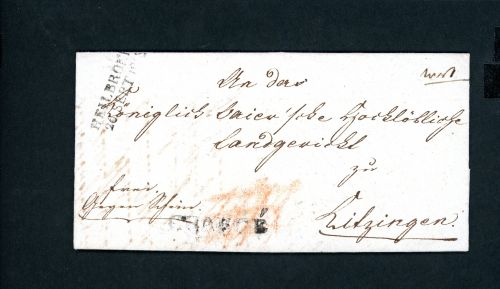 HEILBRONN
An das
Königlich baier'sche Hochlöbliche
Landgericht
zu
Kitzingen.
frei
Gegen Schein.
CHARGÉ